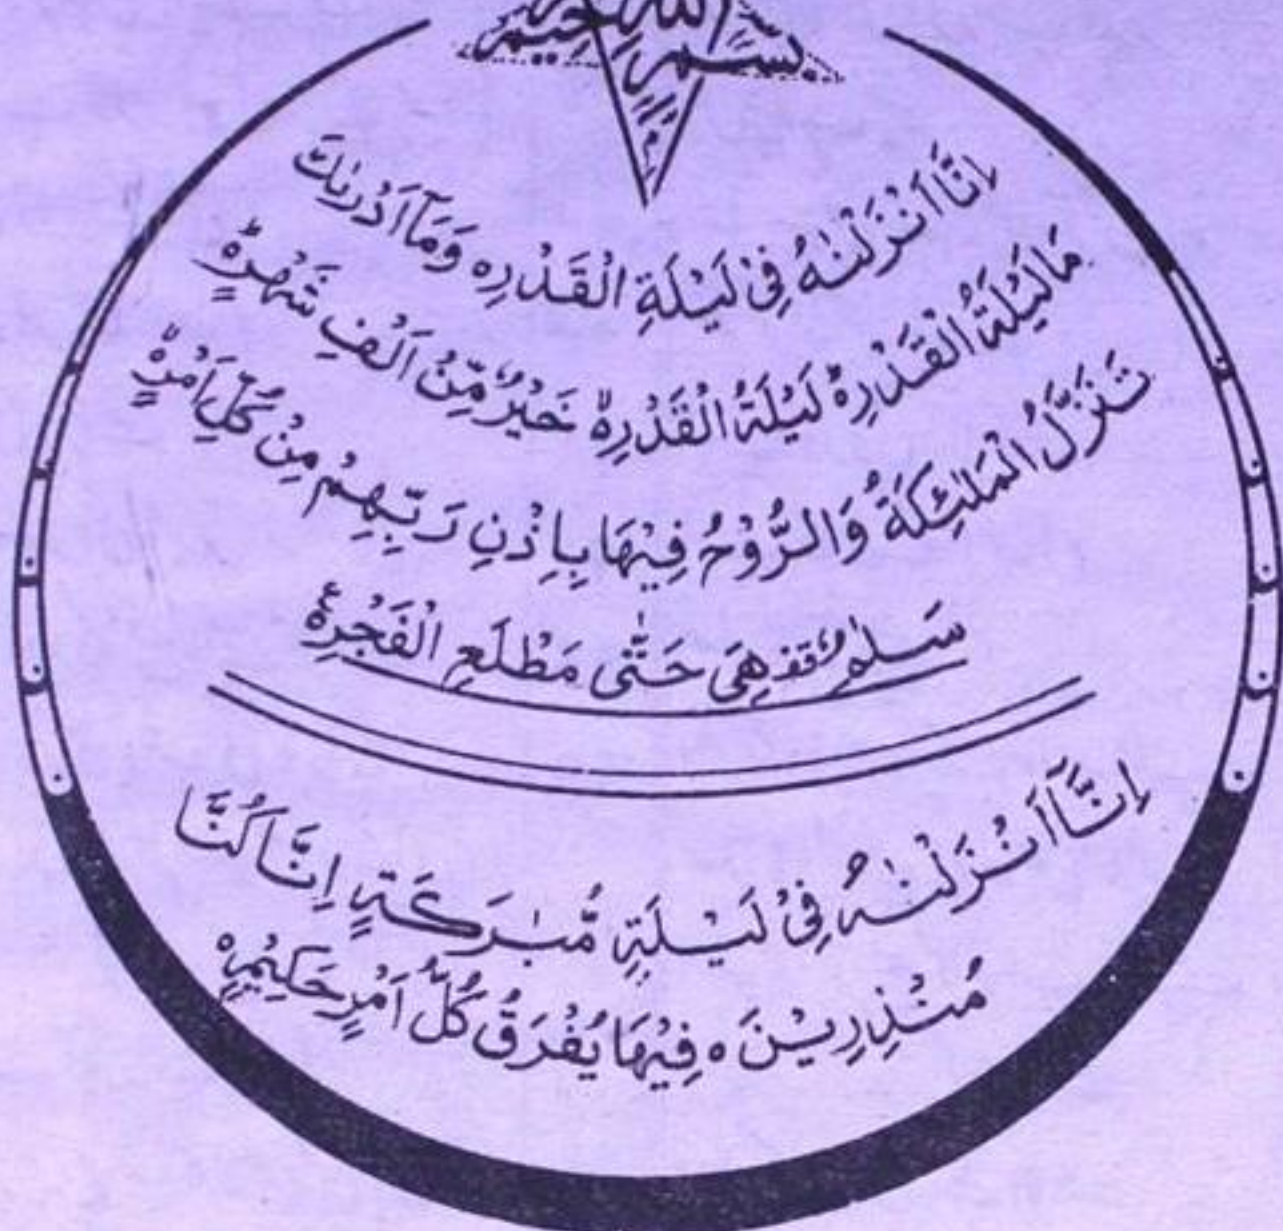 بسم الله الرحیم
اِنَّا اَنْزَلْنٰهُ فِیْ لَیْلَةِ الْقَدْرِ ه وَمَآ اَدْرٰىكَ
مَا لَیْلَةُ الْقَدْرِ ه لَیْلَةُ الْقَدْرِ ه خَیْرٌ مِّنْ اَلْفِ شَهْرٍ ه
تَنَزَّلُ الْمَلٰٓئِكَةُ وَالرُّوْحُ فِیْهَا بِاِذْنِ رَبِّهِمْ مِنْ كُلِّ اَمْرٍ ه
سَلٰمٌ قف هِیَ حَتّٰی مَطْلَعِ الْفَجْرِ ه ع
اِنَّآ اَنْزَلْنٰهُ فِیْ لَیْلَةٍ مُّبٰرَكَةٍ اِنَّا كُنَّا
مُنْذِرِیْنَ ه فِیْهَا یُفْرَقُ كُلُّ اَمْرٍ حَكِیْمٍ ه